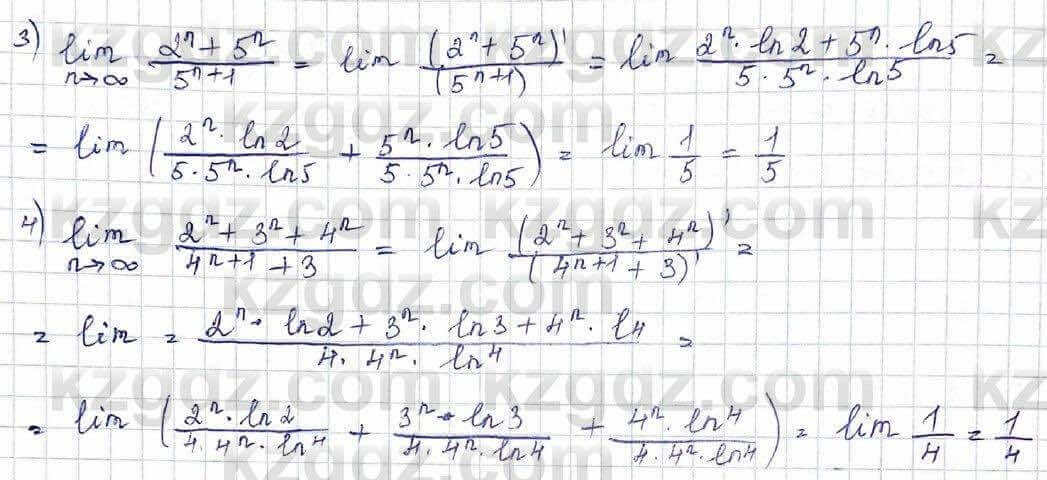 3) lim n→∞ (2ⁿ + 5ⁿ)/(5ⁿ⁺¹) = lim (2ⁿ + 5ⁿ)'/(5ⁿ⁺¹) = lim (2ⁿ · ln2 + 5ⁿ · ln5)/(5 · 5ⁿ · ln5) =
= lim ((2ⁿ · ln2)/(5 · 5ⁿ · ln5) + (5ⁿ · ln5)/(5 · 5ⁿ · ln5)) = lim 1/5 = 1/5
4) lim n→∞ (2ⁿ + 3ⁿ + 4ⁿ)/(4ⁿ⁺¹ + 3) = lim (2ⁿ + 3ⁿ + 4ⁿ)'/(4ⁿ⁺¹ + 3)' =
= lim = (2ⁿ · ln2 + 3ⁿ · ln3 + 4ⁿ · l4)/(4 · 4ⁿ · ln4) =
= lim ((2ⁿ · ln2)/(4 · 4ⁿ · ln4) + (3ⁿ · ln3)/(4 · 4ⁿ · ln4) + (4ⁿ · ln4)/(4 · 4ⁿ · ln4)) = lim 1/4 = 1/4
kzgdz.com